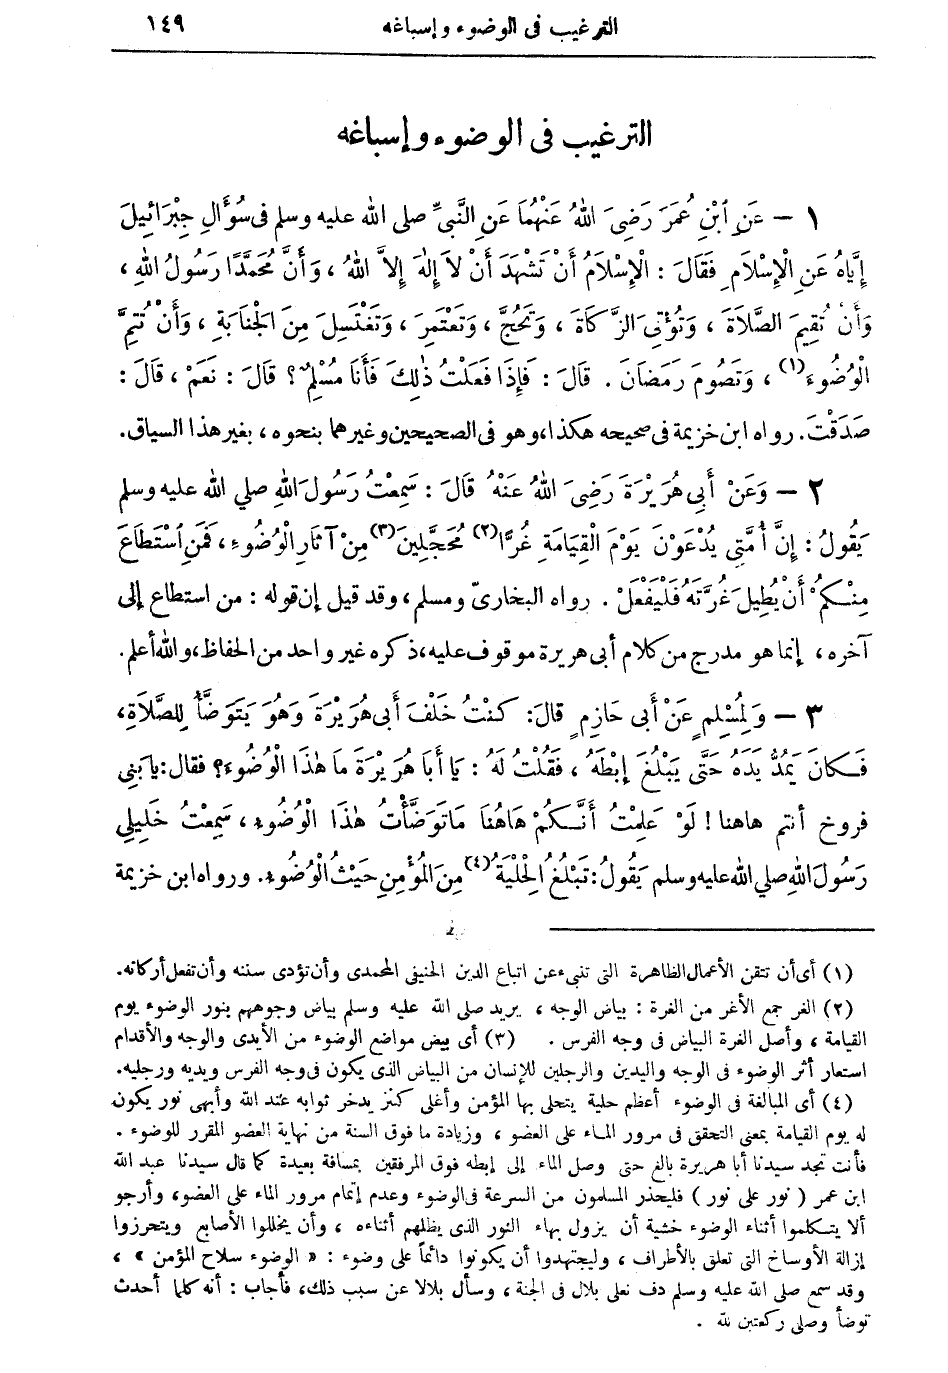 الترغيب فى الوضوء وإسباغه ١٤٩
الترغيب فى الوضوء وإسباغه
١ – عَنِ ٱبْنِ عُمَرَ رَضِىَ اللهُ عَنْهُمَا عَنِ النَّبىِّ صلى الله عليه وسلم فى سُؤَالِ جِبْرَائِيلَ
إِيَّاهُ عَنِ الْإِسْلَامِ فَقَالَ : الْإِسْلَامُ أَنْ تَشْهَدَ أَنْ لَا إِلٰهَ إِلاَّ اللهُ ، وَأَنَّ مُحَمَّدًا رَسُولُ اللهِ ،
وَأَنْ تُقِيمَ الصَّلَاةَ ، وَتُؤْتِىَ الزَّكَاةَ ، وَتَحُجَّ ، وَتَعْتَمِرَ ، وَتَغْتَسِلَ مِنَ الْجَنَابَةِ ، وَأَنْ تُتِمَّ
الْوُضُوءَ (١) ، وَتَصُومَ رَمَضَانَ . قَالَ : فَإِذَا فَعَلْتُ ذٰلِكَ فَأَنَا مُسْلِمٌ ؟ قَالَ : نَعَمْ ، قَالَ :
صَدَقْتَ. رواه ابن خزيمة فى صحيحه هكذا، وهو فى الصحيحين وغيرهما بنحوه ، بغير هذا السياق.
٢ – وَعَنْ أَبِى هُرَيْرَةَ رَضِىَ اللهُ عَنْهُ قَالَ : سَمِعْتُ رَسُولَ اللهِ صلي الله عليه وسلم
يَقُولُ : إِنَّ أُمَّتِى يُدْعَوْنَ يَوْمَ الْقِيَامَةِ غُرًّا (٢) مُحَجَّلِينَ (٣) مِنْ آثَارِ الْوُضُوءِ ، فَمَنِ ٱسْتَطَاعَ
مِنْكُمْ أَنْ يُطِيلَ غُرَّتَهُ فَلْيَفْعَلْ . رواه البخارىّ ومسلم ، وقد قيل إن قوله : من استطاع إلى
آخره ، إنما هو مدرج من كلام أبى هريرة موقوف عليه، ذكره غير واحد من الحفاظ، والله أعلم.
٣ – وَلِمُسْلِمٍ عَنْ أَبِى حَازِمٍ قَالَ: كُنْتُ خَلْفَ أَبِى هُرَيْرَةَ وَهُوَ يَتَوَضَّأُ لِلصَّلَاةِ ،
فَكَانَ يَمُدُّ يَدَهُ حَتَّى يَبْلُغَ إِبْطَهُ ، فَقُلْتُ لَهُ : يَا أَبَا هُرَيْرَةَ مَا هٰذَا الْوُضُوءُ ؟ فقال : يا بَنِى
فروخ أنتم هاهنا ! لَوْ عَلِمْتُ أَنَّكُمْ هَاهُنَا مَا تَوَضَّأْتُ هٰذَا الْوُضُوءَ ، سَمِعْتُ خَلِيلِي
رَسُولَ اللهِ صلي الله عليه وسلم يَقُولُ : تَبْلُغُ الْحِلْيَةُ (٤) مِنَ الْمُؤْمِنِ حَيْثُ الْوُضُوءُ. ورواه ابن خزيمة
(١) أى أن تتقن الأعمال الظاهرة التى تنبىء عن اتباع الدين الحنيفى المحمدى وأن تؤدى سننه وأن تفعل أركانه.
(٢) الغر جمع الأغر من الغرة : بياض الوجه ، يريد صلى الله عليه وسلم بياض وجوههم بنور الوضوء يوم
القيامة ، وأصل الغرة البياض فى وجه الفرس . (٣) أى بيض مواضع الوضوء من الأيدى والوجه والأقدام
استعار أثر الوضوء فى الوجه واليدين والرجلين للإنسان من البياض الذى يكون فى وجه الفرس ويديه ورجليه.
(٤) أى المبالغة فى الوضوء أعظم حلية يتحلى بها المؤمن وأغلى كنز يدخر ثوابه عند الله وأبهى نور يكون
له يوم القيامة بمعنى التحقق فى مرور الماء على العضو ، وزيادة ما فوق السنة من نهاية العضو المقرر للوضوء .
فأنت تجد سيدنا أبا هريرة بالغ حتى وصل الماء إلى إبطه فوق المرفقين بمسافة بعيدة كما قال سيدنا عبد الله
ابن عمر ( نور على نور ) فليحذر المسلمون من السرعة فى الوضوء وعدم إتمام مرور الماء على العضو، وأرجو
ألا يتكلموا أثناء الوضوء خشية أن يزول بهاء النور الذى يظلهم أثناءه ، وأن يخللوا الأصابع ويتحرزوا
إزالة الأوساخ التى تعلق بالأطراف ، وليجتهدوا أن يكونوا دائماً على وضوء : « الوضوء سلاح المؤمن » ،
وقد سمع صلى الله عليه وسلم دف نعلى بلال فى الجنة ، وسأل بلالا عن سبب ذلك، فأجاب : أنه كلما أحدث
توضأ وصلى ركعتين لله .